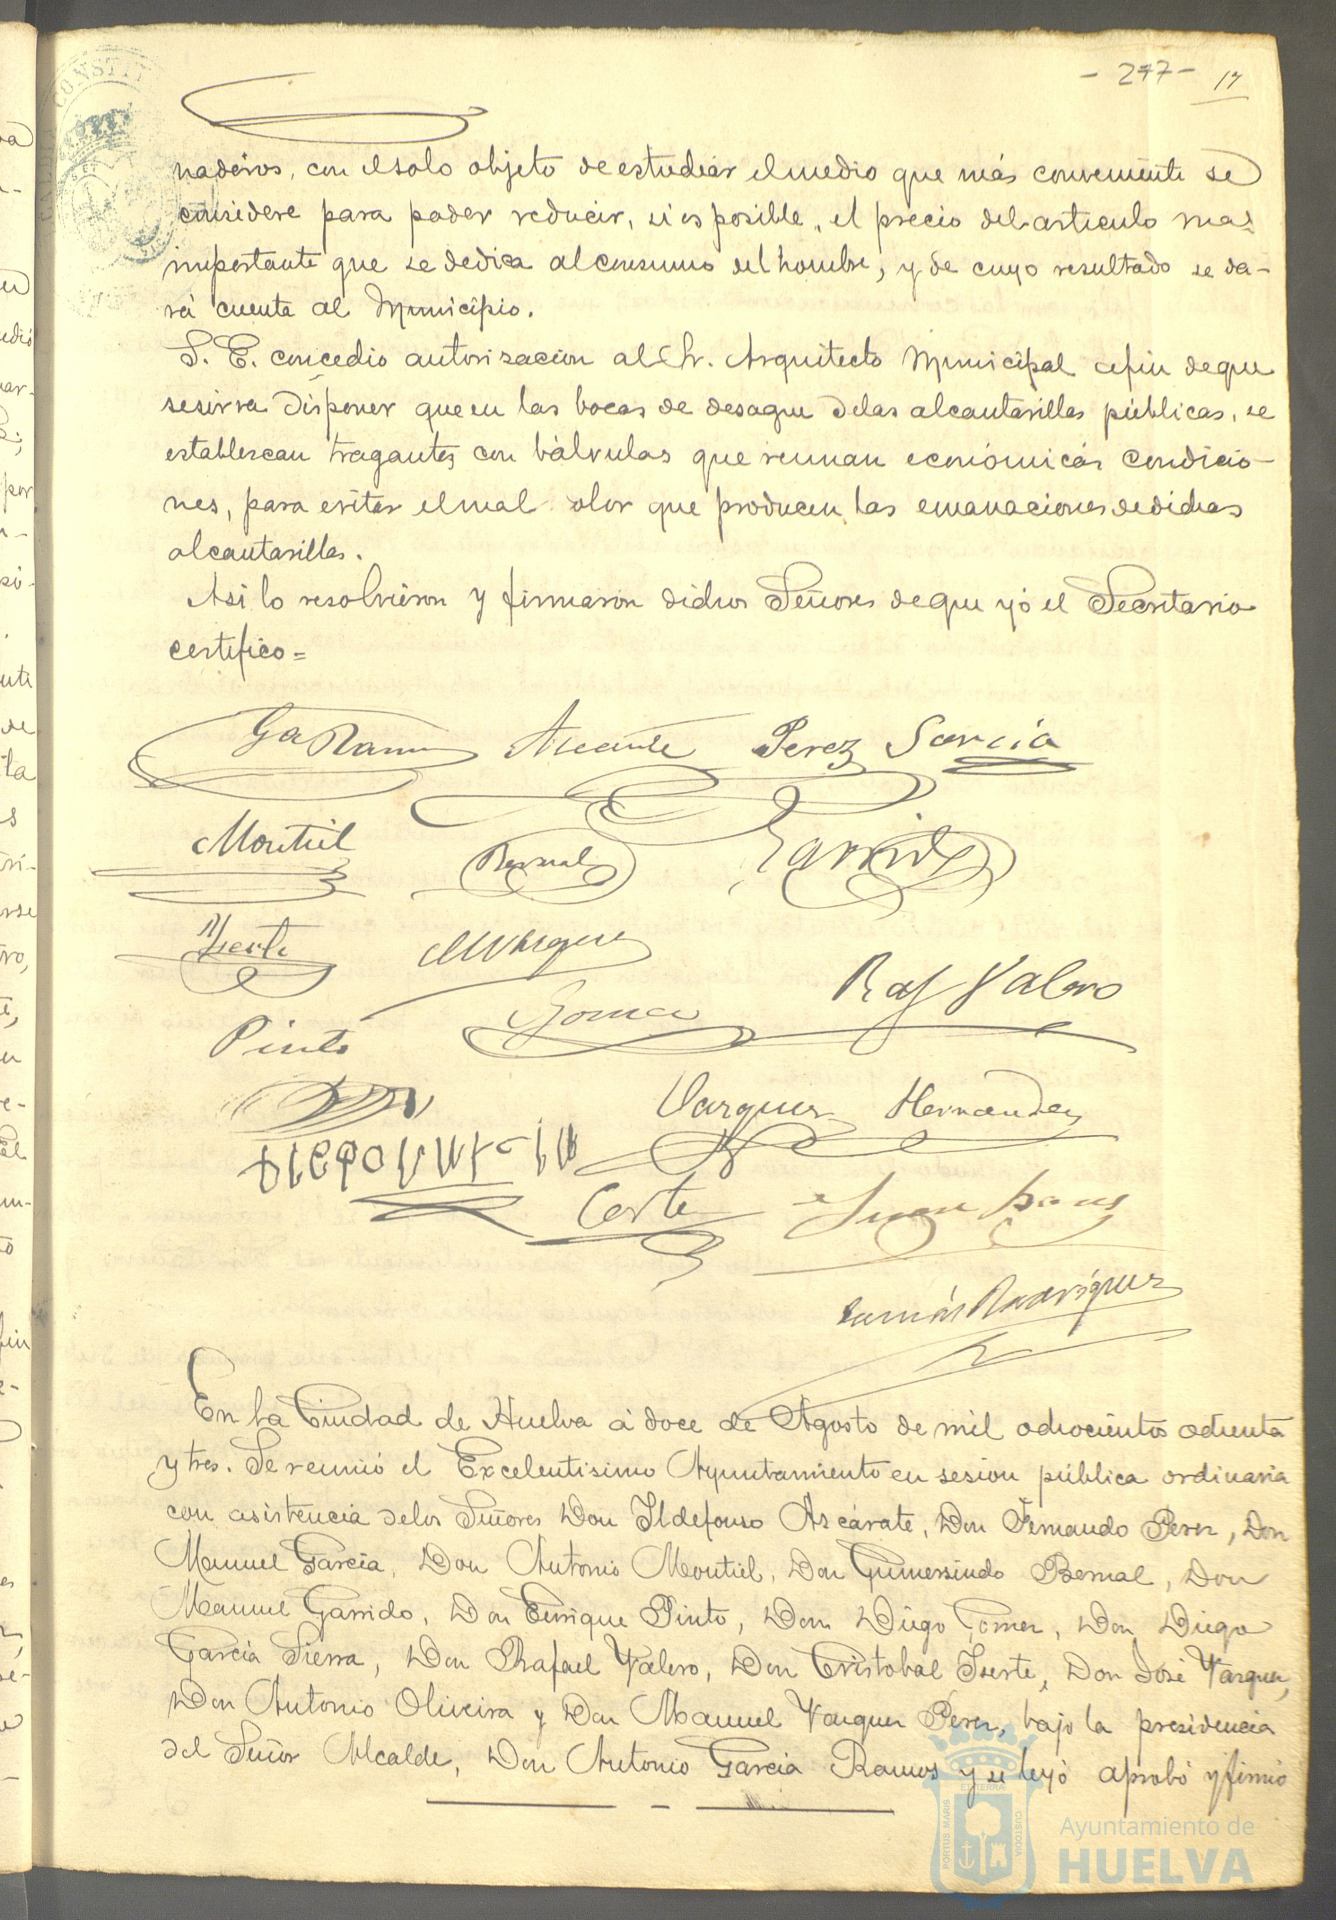 - 247 - 17
naderos, con el solo objeto de estudiar el medio que más conveniente se
considere para poder reducir, si es posible, el precio del articulo mas
importante que se dedica al consumo del hombre, y de cuyo resultado se da-
rá cuenta al Municipio.
S. E. concedio autorizacion al Sr. Arquitecto Municipal afin de que
se sirva disponer que en las bocas de desague de las alcantarillas públicas, se
establezcan tragantes con bálvulas que reunan económicas condicio-
nes, para evitar el mal olor que producen las emanaciones de dichas
alcantarillas.
Asi lo resolvieron y firmaron dichos Señores de que yó el Secretario
certifico=
Ga Ramos Azcarate Perez Garcia
Montiel Bernal Garrido
Yserte M Vazquez
Raf Valero
Pinto Gomez
Vazquez Hernandez
Corte
Tomás Rodriguez
En la Ciudad de Huelva á doce de Agosto de mil ochocientos ochenta
y tres. Se reunió el Excelentisimo Ayuntamiento en sesion pública ordinaria
con asistencia de los Señores Don Ildefonso Azcárate, Don Fernando Perez, Don
Manuel Garcia, Don Antonio Montiel, Don Gumersindo Bernal, Don
Manuel Garrido, Don Enrique Pinto, Don Diego Gomez, Don Diego
Garcia Sierra, Don Rafael Valero, Don Cristobal Yserte, Don José Vazquez,
Don Antonio Oliveira y Don Manuel Vazquez Perez, bajo la presidencia
del Señor Alcalde, Don Antonio Garcia Ramos y se leyó aprobó y firmó
PORTUS MARIS ET TERRAE CUSTODIA
Ayuntamiento de
HUELVA